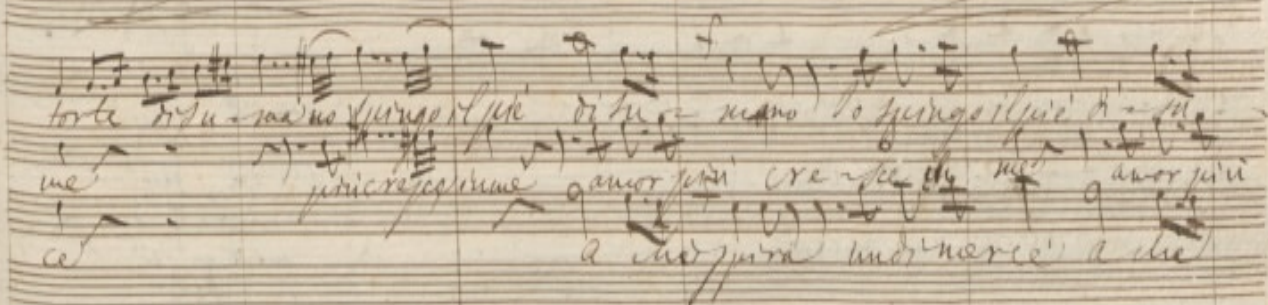 f
forte disu-mano spingo il pié disu-mano lo spingo il pié di-su-
me più cresce in me amor più cre-sce in me amor più
cé a me spira un di mercé a me